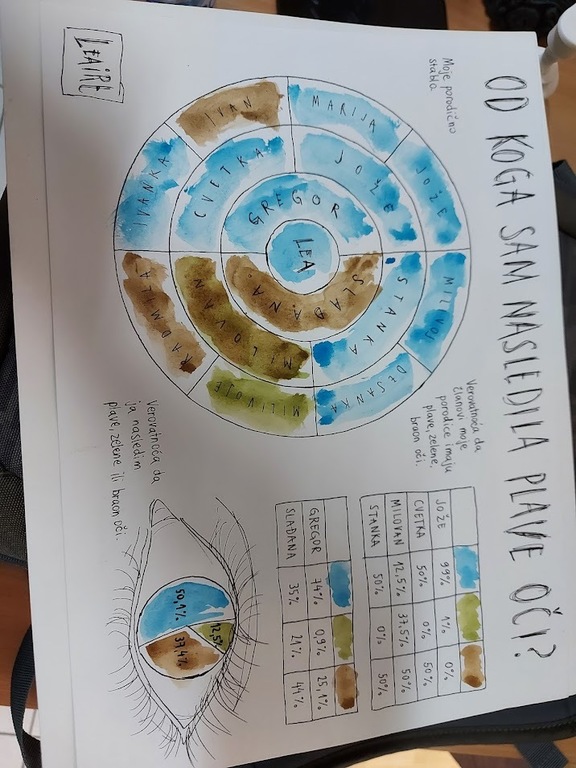 OD KOGA SAM NASLEDILA PLAVE OČI?
Moje porodično
stablo.
LEA
GREGOR
SLAĐANA
CVETKA
JOŽE
STANKA
MILOVAN
IVANKA
IVAN
MARIJA
JOŽE
MILIVOJ
DESANKA
MILIVOJE
RADMILA
Verovatnoća da
članovi moje
porodice imaju
plave, zelene,
braon oči.
JOŽE 99% 1% 0%
CVETKA 50% 0% 50%
MILOVAN 12,5% 37,5% 50%
STANKA 50% 0% 50%
GREGOR 74% 0,9% 25,1%
SLAĐANA 35% 21% 44%
Verovatnoća da
ja nasledim
plave, zelene ili braon oči.
50,1%
12,5%
37,4%
LEAIRE